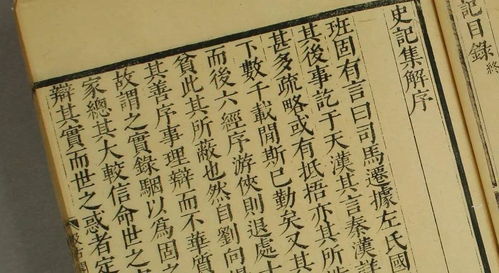 記目錄 終
史記集解序
班固有言曰司馬遷據左氏國
其後事訖于天漢其言秦漢詳
甚多疏略或有抵捂亦其所
下數千載閒斯已勤矣又其
而後六經序游俠則退處士
貧此其所蔽也然自劉向
其善序事理辯而不華質
故謂之實錄駰以爲固之
家總其大較信命世之
辯其實而世之惑者定